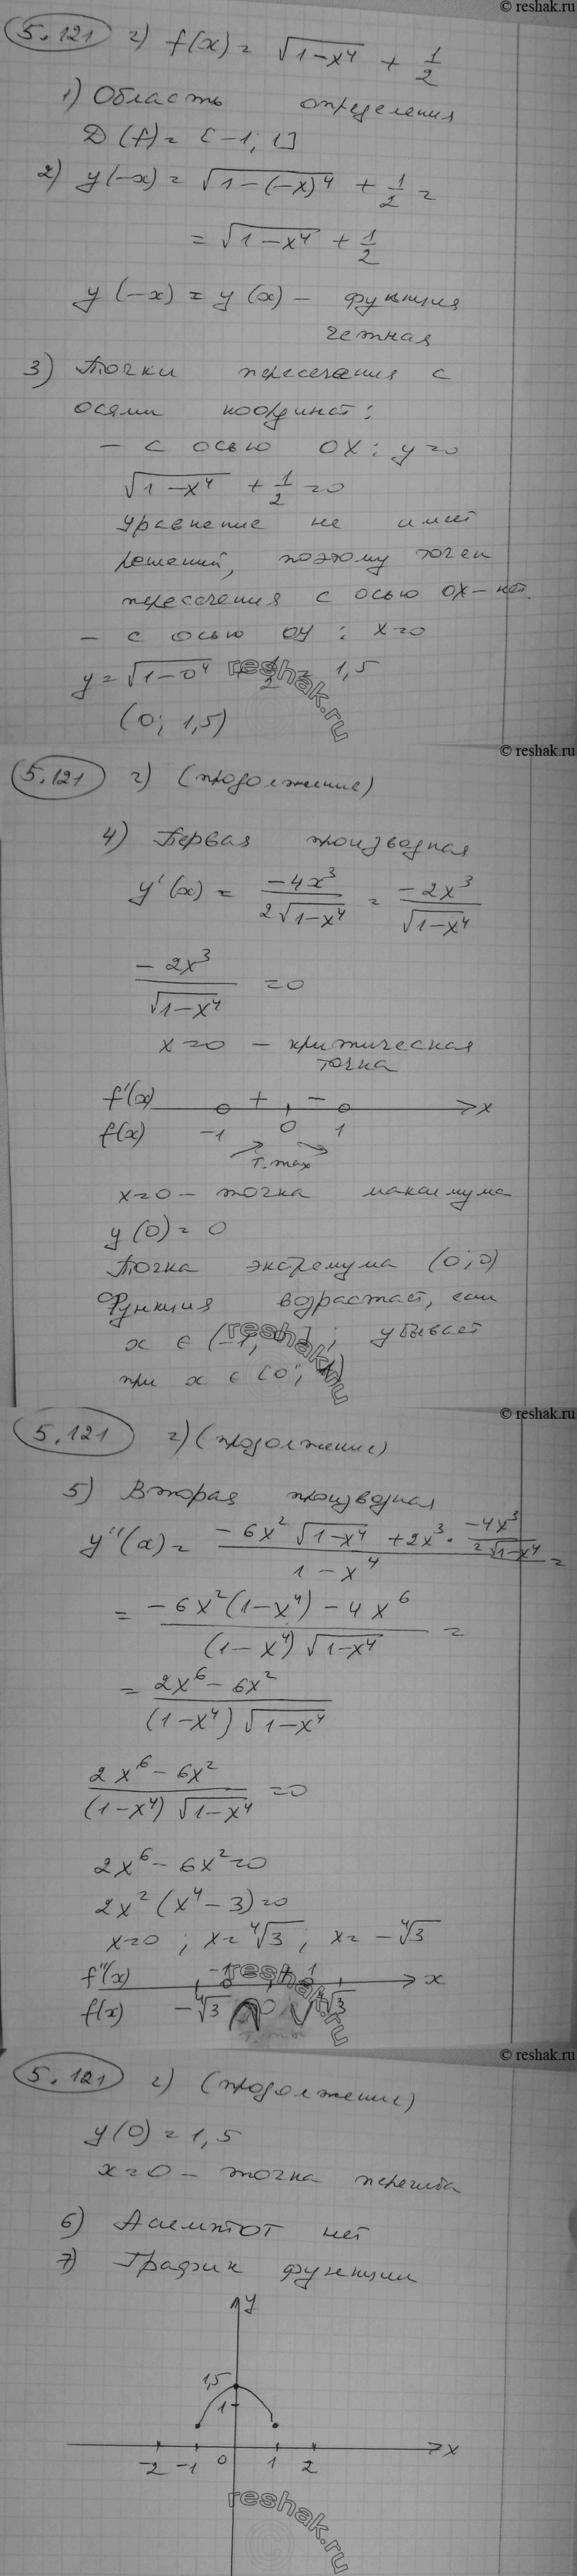 © reshak.ru
5.121 г) f(x) = √(1-x⁴) + 1/2
1) Область определения
D(f) = [-1; 1]
2) y(-x) = √(1-(-x)⁴) + 1/2 =
= √(1-x⁴) + 1/2
y(-x) = y(x) - функция
четная
3) Точки пересечения с
осями координат:
- с осью OX: y=0
√(1-x⁴) + 1/2 = 0
уравнение не имеет
решений, поэтому точек
пересечения с осью OX - нет.
- с осью OY: x=0
y = √(1-0⁴) + 1/2 = 1,5
reshak.ru
(0; 1,5)
© reshak.ru
5.121 г) (продолжение)
4) Первая производная
y'(x) = -4x³/(2√(1-x⁴)) = -2x³/√(1-x⁴)
-2x³/√(1-x⁴) = 0
x=0 - критическая
точка
f'(x) + - x
f(x) -1 0 1
т. max
x=0 - точка максимума
y(0) = 0
Точка экстремума (0;0)
Функция возрастает, если
x ∈ (-1; 0]; убывает
reshak.ru
при x ∈ [0; 1)
© reshak.ru
5.121 г) (продолжение)
5) Вторая производная
y''(x) = (-6x²√(1-x⁴) + 2x³ · -4x³/(2√(1-x⁴)))/(1-x⁴) =
= (-6x²(1-x⁴) - 4x⁶)/((1-x⁴)√(1-x⁴)) =
= (2x⁶-6x²)/((1-x⁴)√(1-x⁴))
(2x⁶-6x²)/((1-x⁴)√(1-x⁴)) = 0
2x⁶-6x²=0
2x²(x⁴-3)=0
x=0; x=⁴√3; x=-⁴√3
f''(x) -1 1 x
reshak.ru
f(x) -⁴√3 0 ⁴√3
© reshak.ru
5.121 г) (продолжение)
y(0) = 1,5
x=0 - точка перегиба
6) Асимптот нет
7) График функции
y
1,5
1
-2 -1 0 1 2 x
reshak.ru